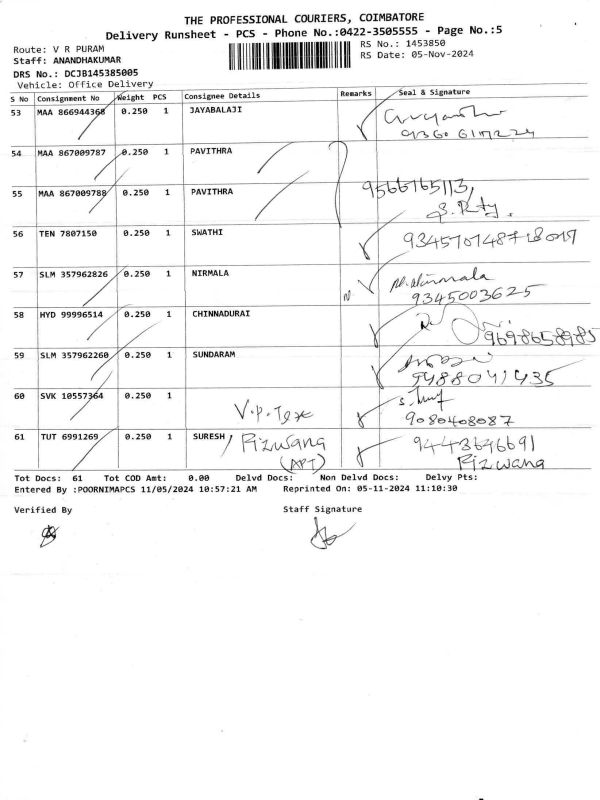 THE PROFESSIONAL COURIERS, COIMBATORE
Delivery Runsheet - PCS - Phone No.:0422-3505555 - Page No.:5
Route: V R PURAM
RS No.: 1453850
Staff: ANANDHAKUMAR
RS Date: 05-Nov-2024
DRS No.: DCJB145385005
Vehicle: Office Delivery
S No Consignment No Weight PCS Consignee Details Remarks Seal & Signature
53 MAA 866944368 0.250 1 JAYABALAJI
54 MAA 867009787 0.250 1 PAVITHRA
55 MAA 867009788 0.250 1 PAVITHRA 9566165113,
56 TEN 7807150 0.250 1 SWATHI
57 SLM 357962826 0.250 1 NIRMALA Nirmala
9345003625
58 HYD 99996514 0.250 1 CHINNADURAI
9698658985
59 SLM 357962260 0.250 1 SUNDARAM
9488041435
60 SVK 10557364 0.250 1 V.P.Tex
9080408087
61 TUT 6991269 0.250 1 SURESH / Rizwana 9443696691
(APT) Rizwana
Tot Docs: 61 Tot COD Amt: 0.00 Delvd Docs: Non Delvd Docs: Delvy Pts:
Entered By :POORNIMAPCS 11/05/2024 10:57:21 AM Reprinted On: 05-11-2024 11:10:30
Verified By Staff Signature